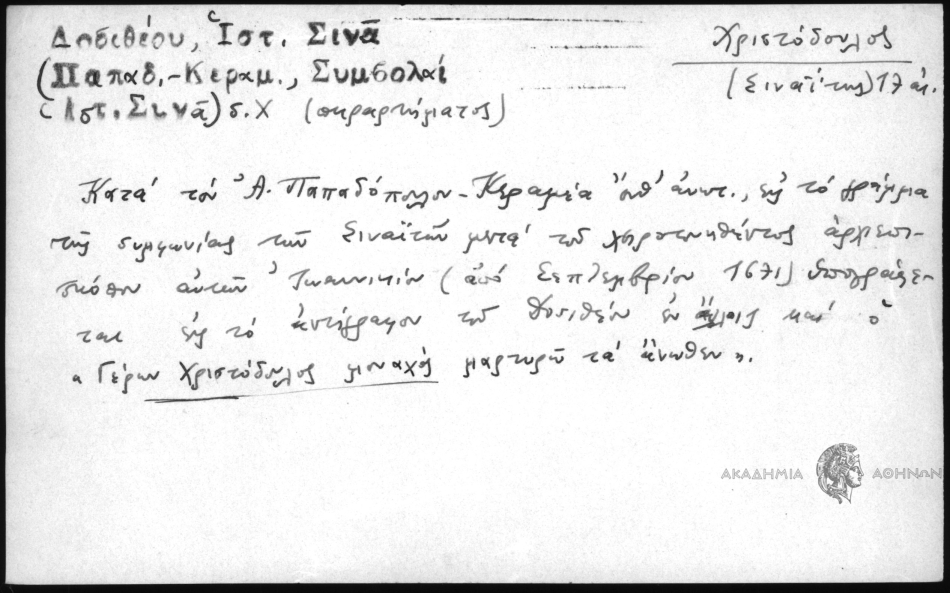 Δοσιθέου, Ἱστ. Σινᾶ
(Παπαδ.-Κεραμ., Συμβολαί
Ἱστ. Σινᾶ) σ. Χ (παραρτήματος)
Χριστόδουλος
(Σιναΐτης) 17 αἰ.
Κατά τόν Ἀ. Παπαδόπουλον-Κεραμέα ἔνθ' ἀνωτ., εἰς τό γράμμα
τῆς συμφωνίας τῶν Σιναϊτῶν μετά τοῦ χειροτονηθέντος ἀρχιεπι-
σκόπου αὐτῶν Ἰωαννικίου (ἀπό Σεπτεμβρίου 1671) ὑπογράφε-
ται εἰς τό ἀντίγραφον τοῦ Δοσιθέου ἐν ἄλλοις καί ὁ
« Γέρων Χριστόδουλος μοναχός μαρτυρῶ τά ἄνωθεν ».
ΑΚΑΔΗΜΙΑ ΑΘΗΝΩΝ